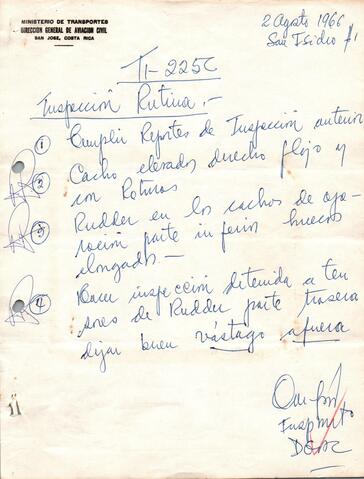 MINISTERIO DE TRANSPORTES
DIRECCIÓN GENERAL DE AVIACIÓN CIVIL
SAN JOSE, COSTA RICA
2 Agosto 1966
San Isidro #1
TI-225C
Inspección Rutina.-
1 Cumplir Reportes de Inspección anterior
2 Cacho elevador derecho flojo y
con Roturas
3 Rudder en los cachos de ope-
ración parte inferior huecos
elongados-
4 Hacer inspección detenida a ten
sores de Rudder parte trasera
dejar buen vástago afuera
Inspector
DGAC
11